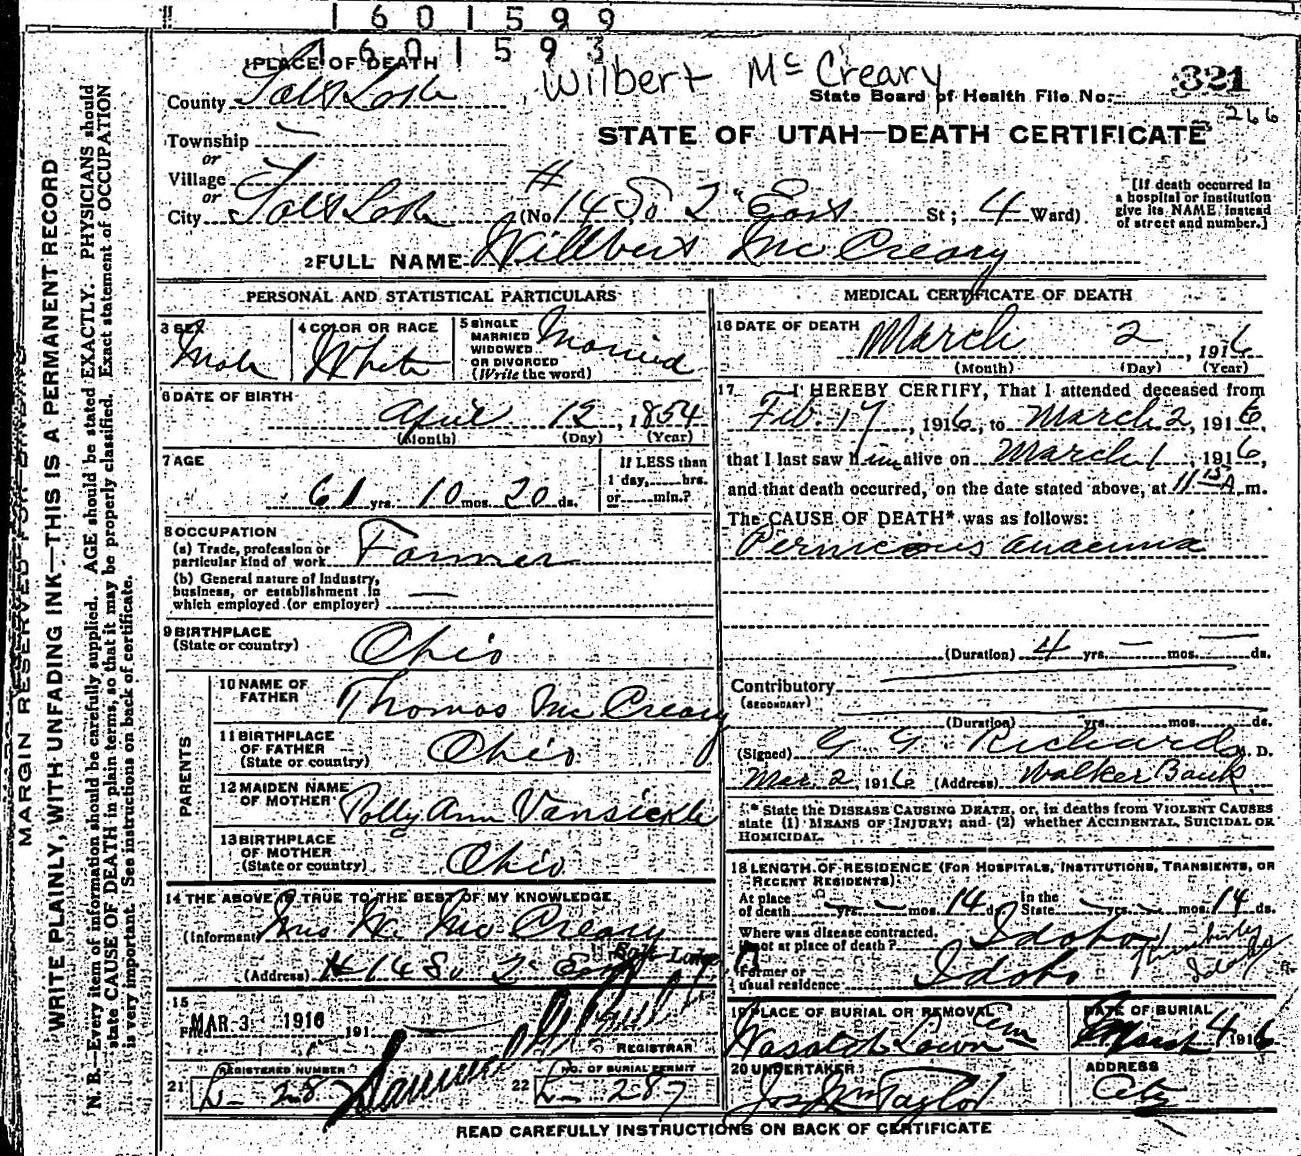 1601599
1601593
1 PLACE OF DEATH
Wilbert McCreary
County Salt Lake
State Board of Health File No. 321
266
Township —
or
STATE OF UTAH—DEATH CERTIFICATE
Village
or
City Salt Lake (No. # 14 So 2" East St; 4 Ward)
[If death occurred in
a hospital or institution
give its NAME instead
of street and number.]
2 FULL NAME Willbert McCreary
PERSONAL AND STATISTICAL PARTICULARS
3 SEX
Male
4 COLOR OR RACE
White
5 SINGLE
MARRIED
WIDOWED
OR DIVORCED
(Write the word)
Married
6 DATE OF BIRTH
April 12, 1854
(Month) (Day) (Year)
7 AGE
61 yrs. 10 mos. 20 ds.
If LESS than
1 day, hrs.
or min.?
8 OCCUPATION
(a) Trade, profession or
particular kind of work Farmer
(b) General nature of Industry,
business, or establishment in
which employed (or employer) —
9 BIRTHPLACE
(State or country) Ohio
PARENTS
10 NAME OF
FATHER Thomas McCreary
11 BIRTHPLACE
OF FATHER
(State or country) Ohio
12 MAIDEN NAME
OF MOTHER Polly Ann Vansickle
13 BIRTHPLACE
OF MOTHER
(State or country) Ohio
14 THE ABOVE IS TRUE TO THE BEST OF MY KNOWLEDGE
(Informant) Mrs Mc Creary
(Address) # 14 So 2" East Salt Lake
15
MAR-3 1916 191
REGISTRAR
REGISTERED NUMBER
21 L- 287
NO. OF BURIAL PERMIT
22 L- 287
MEDICAL CERTIFICATE OF DEATH
16 DATE OF DEATH March 2, 1916
(Month) (Day) (Year)
17 I HEREBY CERTIFY, That I attended deceased from
Feb. 17, 1916, to March 2, 1916,
that I last saw him alive on March 1, 1916,
and that death occurred, on the date stated above, at 11 15 A m.
The CAUSE OF DEATH* was as follows:
Pernicous anaemia
(Duration) 4 yrs. — mos. — ds.
Contributory
(SECONDARY)
(Duration) yrs. mos. ds.
(Signed) G G Richards M. D.
Mar 2, 1916 (Address) Walker Bank
* State the DISEASE CAUSING DEATH, or, in deaths from VIOLENT CAUSES
state (1) MEANS OF INJURY; and (2) whether ACCIDENTAL, SUICIDAL OR
HOMICIDAL.
18 LENGTH OF RESIDENCE (FOR HOSPITALS, INSTITUTIONS, TRANSIENTS, OR
RECENT RESIDENTS).
At place
of death — yrs. — mos. 14 ds. In the
State — yrs. — mos. 14 ds.
Where was disease contracted,
if not at place of death? Idaho
Former or
usual residence Idaho Kimberley Idaho
19 PLACE OF BURIAL OR REMOVAL
Wasatch Lawn Cem
DATE OF BURIAL
March 4 1916
20 UNDERTAKER
Jos Wm Taylor
ADDRESS
City
READ CAREFULLY INSTRUCTIONS ON BACK OF CERTIFICATE
MARGIN RESERVED FOR BINDING
WRITE PLAINLY, WITH UNFADING INK—THIS IS A PERMANENT RECORD
N. B.—Every item of information should be carefully supplied. AGE should be stated EXACTLY. PHYSICIANS should
state CAUSE OF DEATH in plain terms, so that it may be properly classified. Exact statement of OCCUPATION
is very important. See instructions on back of certificate.